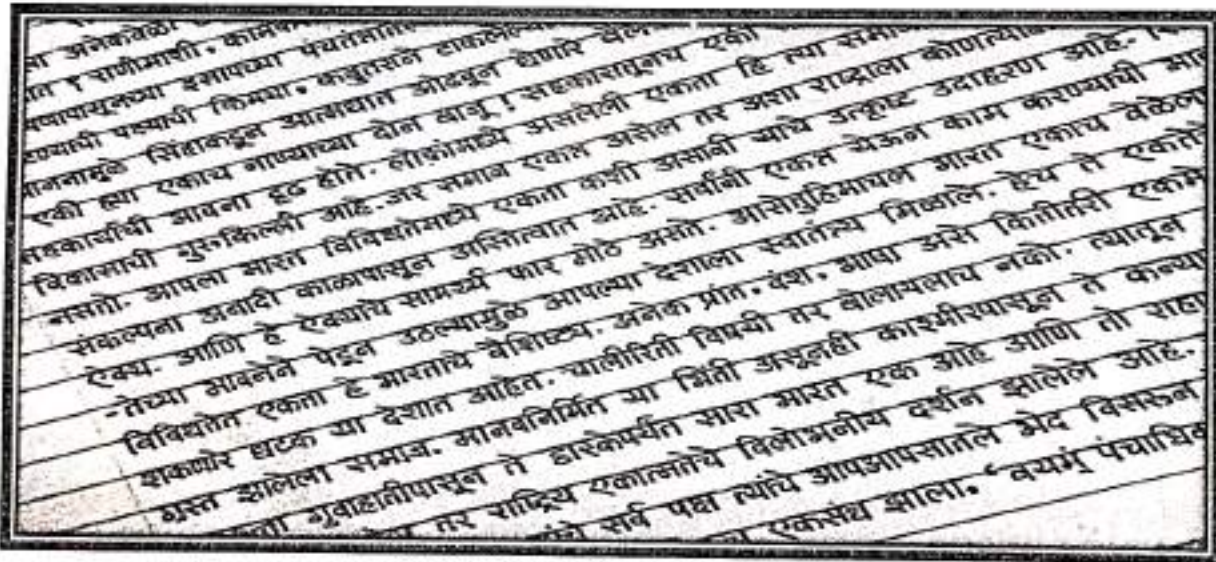 अनेकवेळा
राणीमाशी. काम
पासूनच्या इसापच्या पंचतंत्रातील
पळण्याची किमया. कबुतराने टाकलेल्या
सिंहाकडून आत्मघात ओढवून घेणारे बैल
एकी ह्या एकाच नाण्याच्या दोन बाजू! सहकारातूनच एकी
सहकार्याची भावना दृढ होते. लोकांमध्ये असलेली एकता हि त्या
विकासाची गुरुकिल्ली आहे. जर समाज एकत्र असेल तर अशा राष्ट्राला कोणत्याही
नसतो. आपला भारत विविधतेमध्ये एकता कशी असावी याचे उत्कृष्ट उदाहरण आहे.
संकल्पना अनादी काळापासून अस्तित्वात आहे. सर्वांनी एकत्र येऊन काम करण्याची
ऐक्य. आणि हे ऐक्याचे सामर्थ्य फार मोठे असते. आसेतुहिमाचल भारत एकाच वेळेला
-तेच्या भावनेने पेटून उठल्यामुळे आपल्या देशाला स्वातंत्र्य मिळाले. हेच ते एकतेचे
विविधतेत एकता हे भारताचे वैशिष्ट्य. अनेक प्रांत. वंश. भाषा असे कितीतरी एकमे
शकणारे घटक या देशात आहेत. चालीरिती विषयी तर बोलायलाच नको. त्यातून
ग्रस्त झालेला समाज. मानवनिर्मित या भिंती असूनही काश्मीरपासून ते कन्या
गुवाहातीपासून ते द्वारकेपर्यंत सारा भारत एक आहे आणि तो राहा
तर राष्ट्रिय एकात्मतेचे विलोभनीय दर्शन झालेले आहे.
सर्व पक्ष त्यांचे आपआपसातले भेद विसरून
एकसंध झाला. "वयम् पंचाधिक